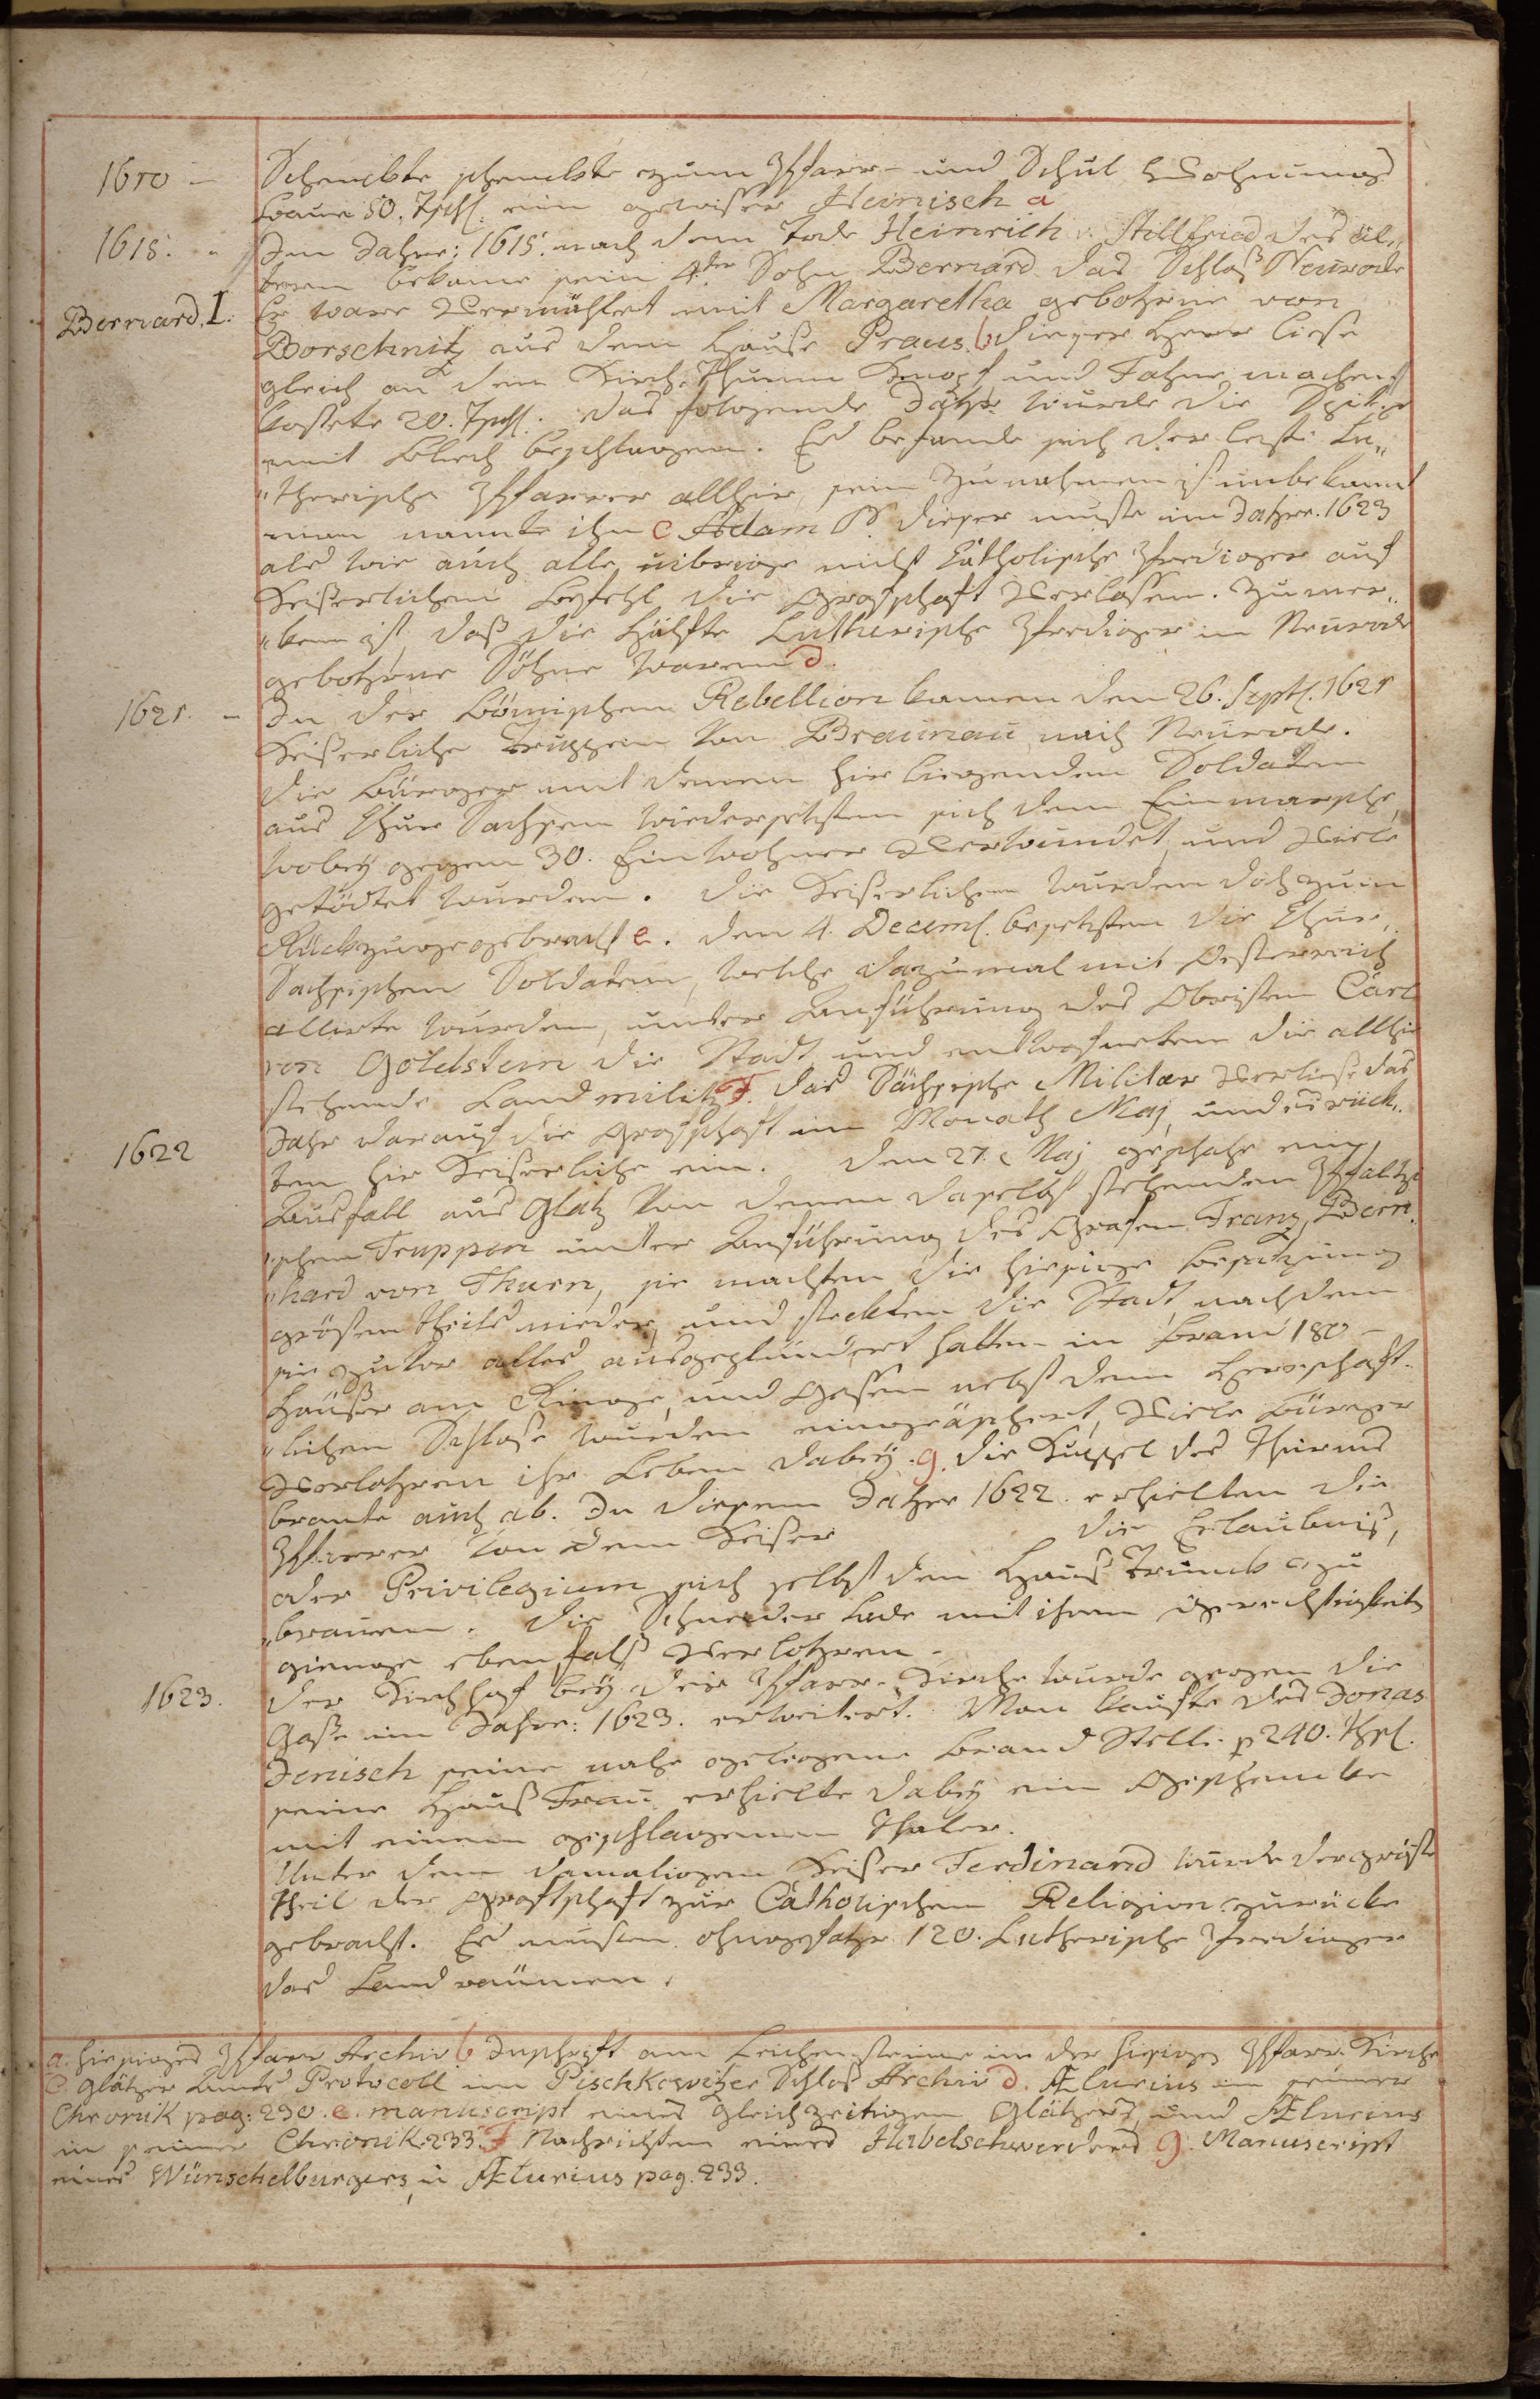 1610 –
Schenckte schenckte zum Pfarr- und Schul Wohnungs
baue 80. Tschl. ein gewisser Heinisch a
1615. –
Im Jahre: 1615. nach dem Tode Heinrich v. Stillfried des äl„
tern bekame sein 4ter Sohn Bernard das Schloß Neurode
Bernard. I.
Er ware Vermählet mit Margaretha gebohrne von
Borschnitz aus dem Hause Praus. b dieser Herr liese
gleich an dem Kirch Thurm Knopf und Fahne machen
kostete 20. Tschl. das folgende Jahr wurde die Spitze
mit Blech beschlagen. Es befande sich der leste Lu„
„therische Pfarrer allhier, sein Zunahmen ist unbekannt
man nannte ihn c Adam P. dieser muste im Jahre. 1623
als wie auch alle uibrige nicht Catholische Prediger auf
Keißerlichen Befehl die Grafschaft Verlassen. Zu mer„
„ken ist, daß die Hälfte Lutherische Prediger in Neurode
gebohrne Söhne waren d.
1621. –
In der Böhmischen Rebellion kamen den 26. Septb. 1621
Keißerliche Truppen von Braunau nach Neurode.
die Bürger mit denen hier liegenden Soldaten
aus Chur Sachsen wiedersetzten sich dem Einmarsche,
wobey gegen 30. Einwohner Verwundet und Viele
getödtet wurden. die Keißerlichen wurden doch zum
Rückzuge gebracht e. den 4. Decemb. besetzten die Chur„
Sachsischen Soldaten, welche dazumal mit Oesterreich
allirte wurden, unter Anführung des Obristen Carl
von Goldstein die Stadt und entwafneten die allhie
stehende Landmilitz f. das Sächsische Militar Verliese das
1622
Jahr darauf die Grafschaft im Monath Maj, und rück„
ten hie Keißerliche ein. den 27. Maj geschahe ein
Ausfall aus Glatz von denen daselbst stehenden Pfaltzi
„schen Truppen unter Anführung des Grafen Franz, Bern„
„hard von Thurn, sie machten die hiesige besatzung
grösten theils nieder, und steckten die Stadt nachdem
sie zuvor alles ausgeplündert hatten in brand 180 –
Häußer am Ringe, und Gassen nebst dem Herrschaft„
„lichen Schlosse wurden eingeäschert, Viele Bürger
Verlohren ihr Leben dabey. g. die Kuppel des Thurms
brante auch ab. In diesem Jahre 1622. erhielten die
Pfarrer von dem Keißer die Erlaubniß,
oder Privilegium sich selbst den Hauß Trunck zu
„brauen. die Schneider Lade mit ihren Gerechtigkeiten
gienge eben fals Verlohren.
1623.
der Kirchhof bey der Pfarr-Kirche wurde gegen die
Gaße im Jahre: 1623. erweitert. Man kaufte des Jonas
Jenisch seine nahe gelegene brand Stelle. p 240. Thl.
seine Hauß Frau erhielte dabey ein Geschencke
mit einem geschlagenen Thaler.
Unter dem damaligen Keißer Ferdinand wurde der gröste
Theil der Grafschaft zur Catholischen Religion zurücke
gebracht. Es musten ohngefahr 120. Lutherische Prediger
das Land raümen.
a. hiesiges Pfarr Archiv b Inschrift am Leichensteine in der hiesigen Pfarr-Kirche
c. Glätzer Amts Protocoll im Pischkowitzer Schloß Archiv d. Ælurius in seiner
Chronik pag: 230. e. manuscript eines gleichzeitigen Glätzers und Ælurius
in seiner Chronik. 233. f Nachrichten eines Habelschwerders g. Manuscript
eines Wünschelburgers, u Ælurius pag. 233.